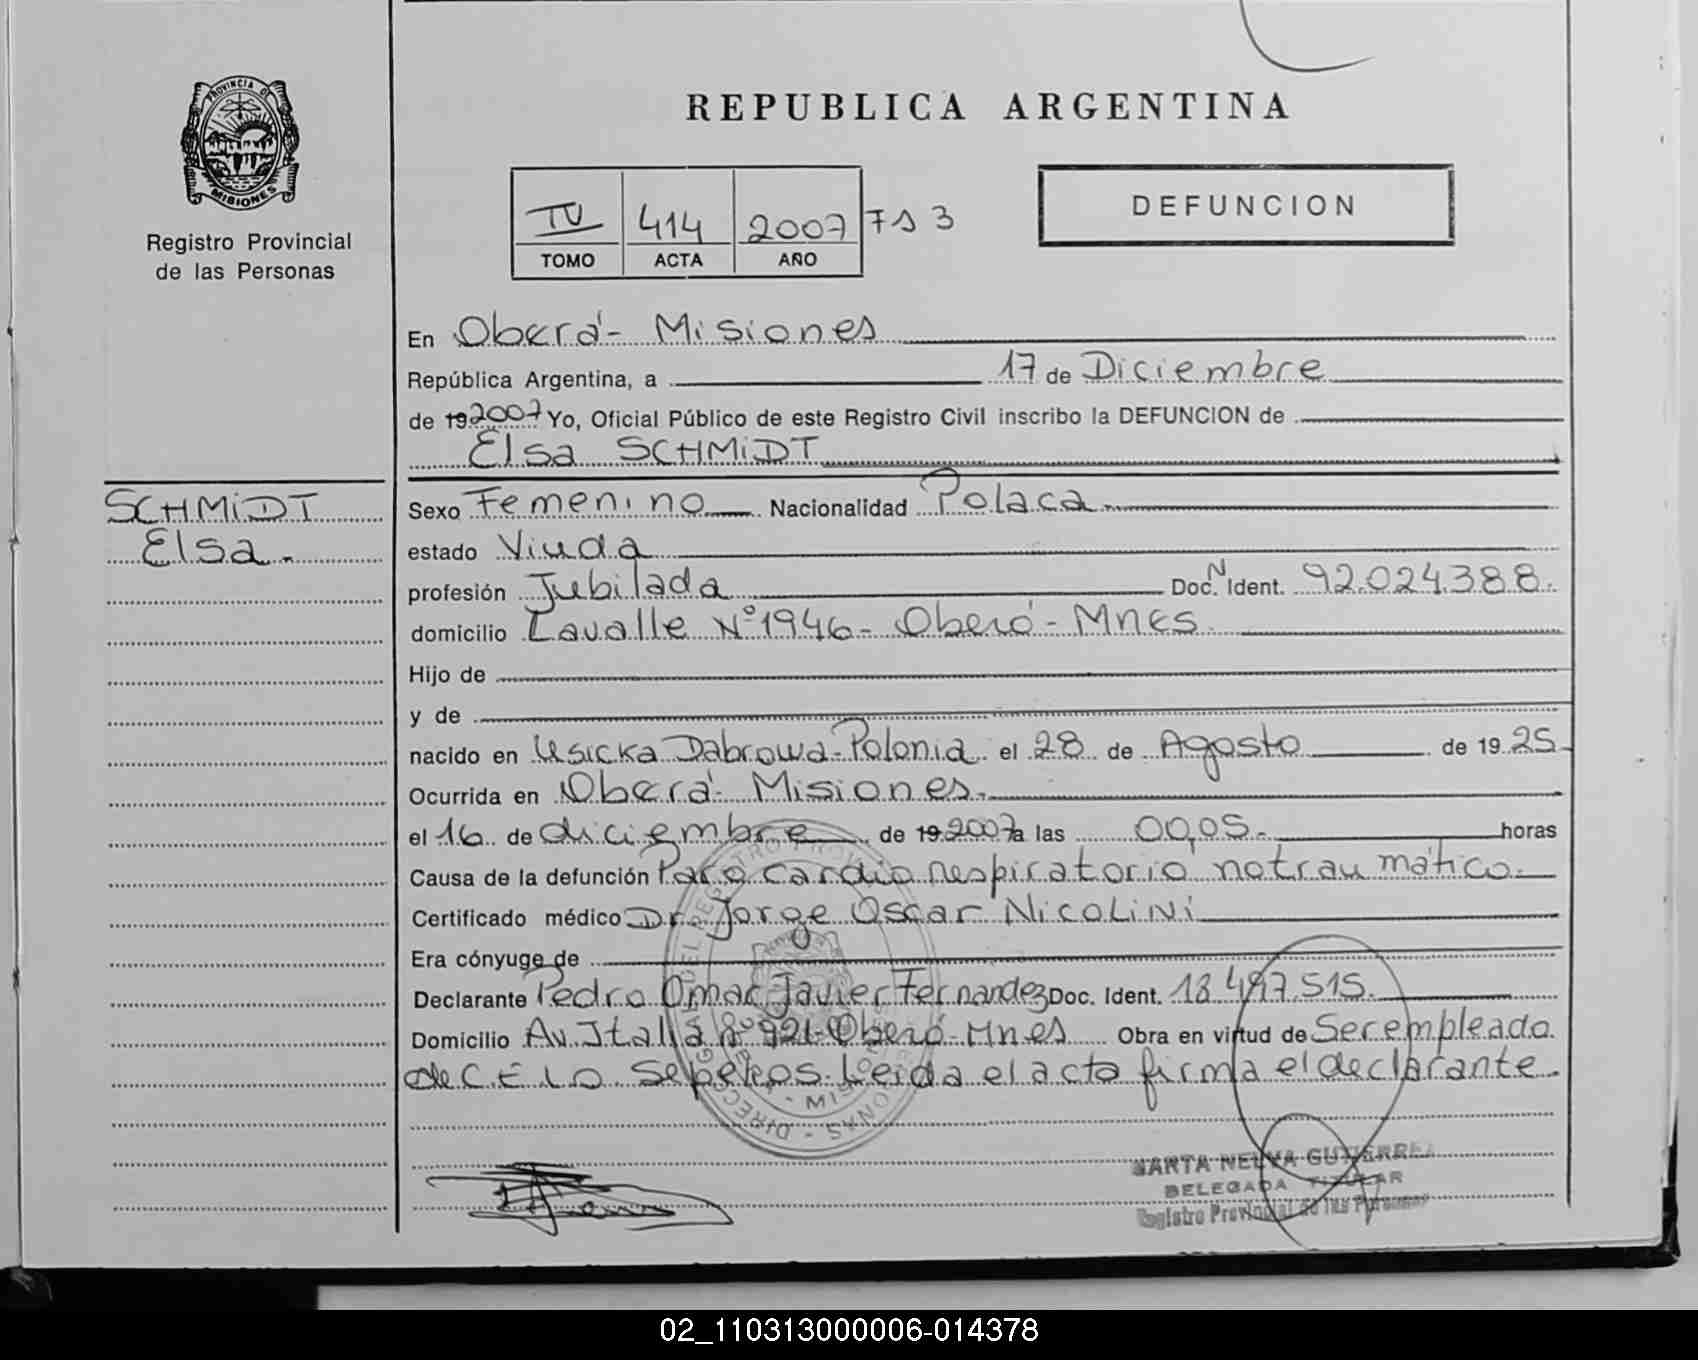 PROVINCIA DE
MISIONES
Registro Provincial
de las Personas
REPUBLICA ARGENTINA
IV 414 2007 Fs 3
TOMO ACTA AÑO
DEFUNCION
En Oberá - Misiones
República Argentina, a 17 de Diciembre
de 19 2007 Yo, Oficial Público de este Registro Civil inscribo la DEFUNCION de
Elsa SCHMIDT
SCHMIDT
Elsa.-
Sexo Femenino Nacionalidad Polaca
estado Viuda
profesión Jubilada Doc. N Ident. 92.024.388.
domicilio Lavalle Nº 1946 - Oberá - Mnes
Hijo de
y de
nacido en Usicka Dabrowa - Polonia el 28 de Agosto de 19 25
Ocurrida en Oberá - Misiones.-
el 16 de diciembre de 19 2007 a las 00,05.- horas
Causa de la defunción Paro cardio respiratorio no traumático.-
Certificado médico Dr. Jorge Oscar Nicolini
Era cónyuge de
Declarante Pedro Omar Javier Fernandez Doc. Ident. 18.497.515.
Domicilio Av. Italia nº 921 - Oberá - Mnes Obra en virtud de Ser empleado
de C E L O Sepelios. Leida el acta firma el declarante.
MARTA NELVA GUTIERREZ
DELEGADA TITULAR
Registro Provincial de las Personas
02_110313000006-014378